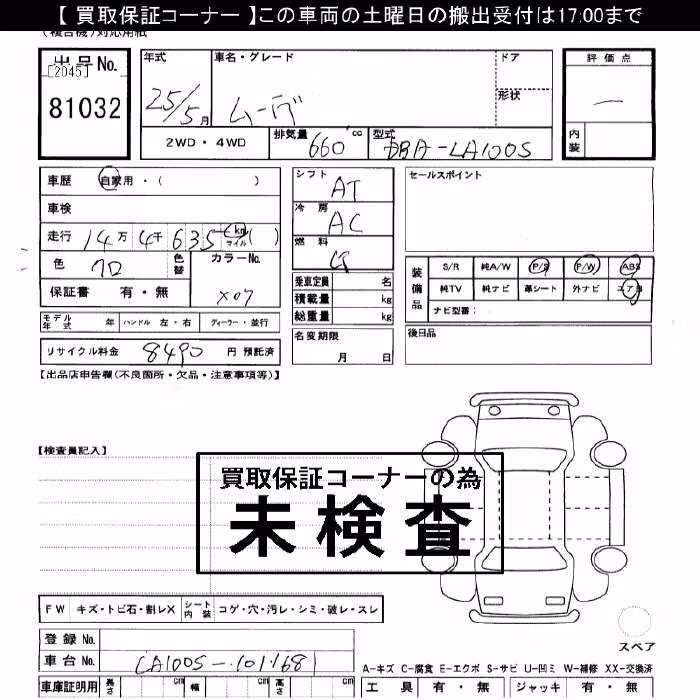 【 買取保証コーナー 】この車両の土曜日の搬出受付は17:00まで
出品No.
[2045]
81032
年式
25/5月
車名・グレード
ムーヴ
ドア
形状
評価点
—
内装
2WD・4WD
排気量 660 cc
型式 DBA-LA100S
車歴 自家用・( )
車検
走行 14万 4千 635 km マイル ( )
色 クロ 色替
カラーNo. X07
保証書 有・無
シフト AT
冷房 AC
燃料 G
乗車定員 名
積載量 kg
総重量 kg
セールスポイント
装備品
S/R 純A/W P/S P/W ABS
純TV 純ナビ 革シート 外ナビ エアB
ナビ型番:
モデル年式 年 ハンドル 左・右 ディーラー・並行
名変期限 月 日
後日品
リサイクル料金 8490 円 預託済
【出品店申告欄(不良箇所・欠品・注意事項等)】
【検査員記入】
買取保証コーナーの為
未検査
FW キズ・トビ石・割レX シート内装 コゲ・穴・汚レ・シミ・破レ・スレ
スペア
登録No.
車台No. LA100S-1011681
A-キズ C-腐食 E-エクボ S-サビ U-凹ミ W-補修 XX-交換済
車庫証明用 長さ cm 幅 cm 高さ cm
工具 有・無 ジャッキ 有・無